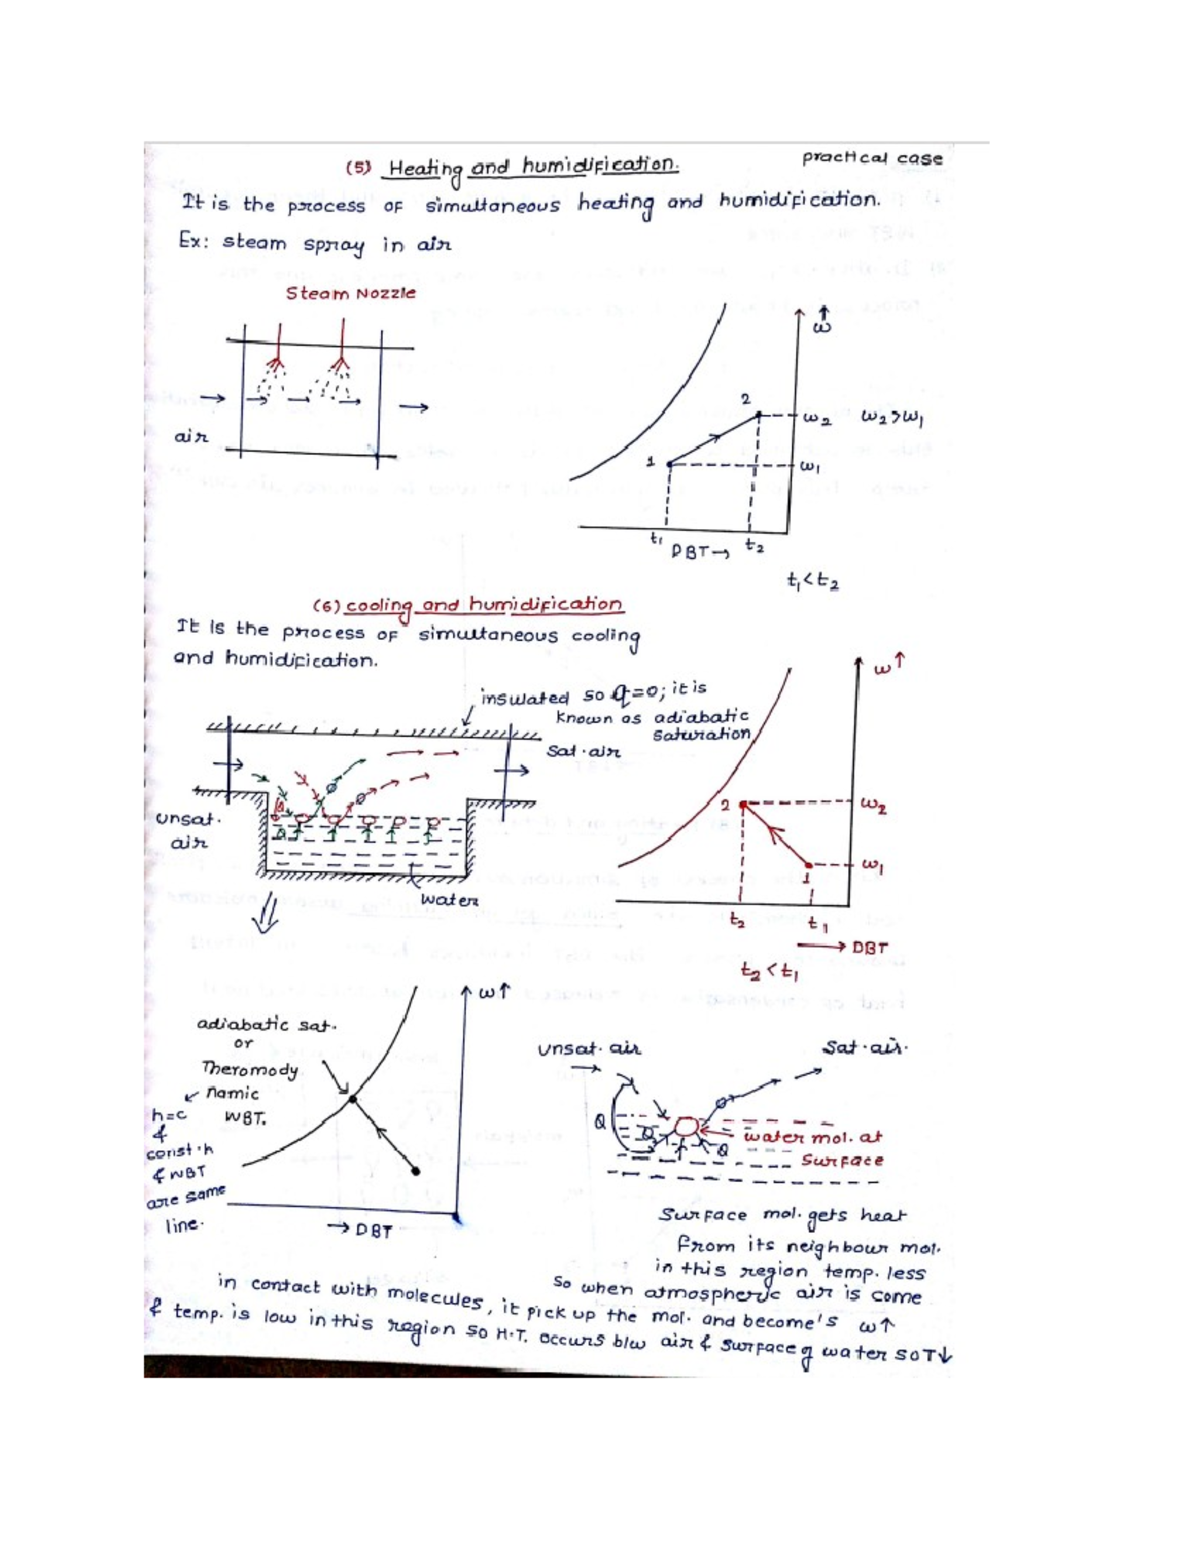 (5) Heating and humidification.
practical case
It is the process of simultaneous heating and humidification.
Ex: steam spray in air
Steam Nozzle
air
ω↑
2
ω2 ω2>ω1
1
ω1
t1 DBT→ t2
t1<t2
(6) cooling and humidification
It is the process of simultaneous cooling
and humidification.
insulated so q=0; it is
known as adiabatic
saturation
Sat. air
unsat.
air
water
ω↑
2
ω2
ω1
1
t2 t1
→ DBT
t2<t1
ω↑
adiabatic sat.
or
Theromody
namic
WBT.
h=c
&
const.h
& WBT
are same
line.
→ DBT
Unsat. air
Sat. air.
Q
Q
Q
water mol. at
Surface
Surface mol. gets heat
from its neighbour mol.
in this region temp. less
So when atmospheric air is come
in contact with molecules, it pick up the mol. and become's ω↑
& temp. is low in this region so H.T. occurs b/w air & surface of water so T↓